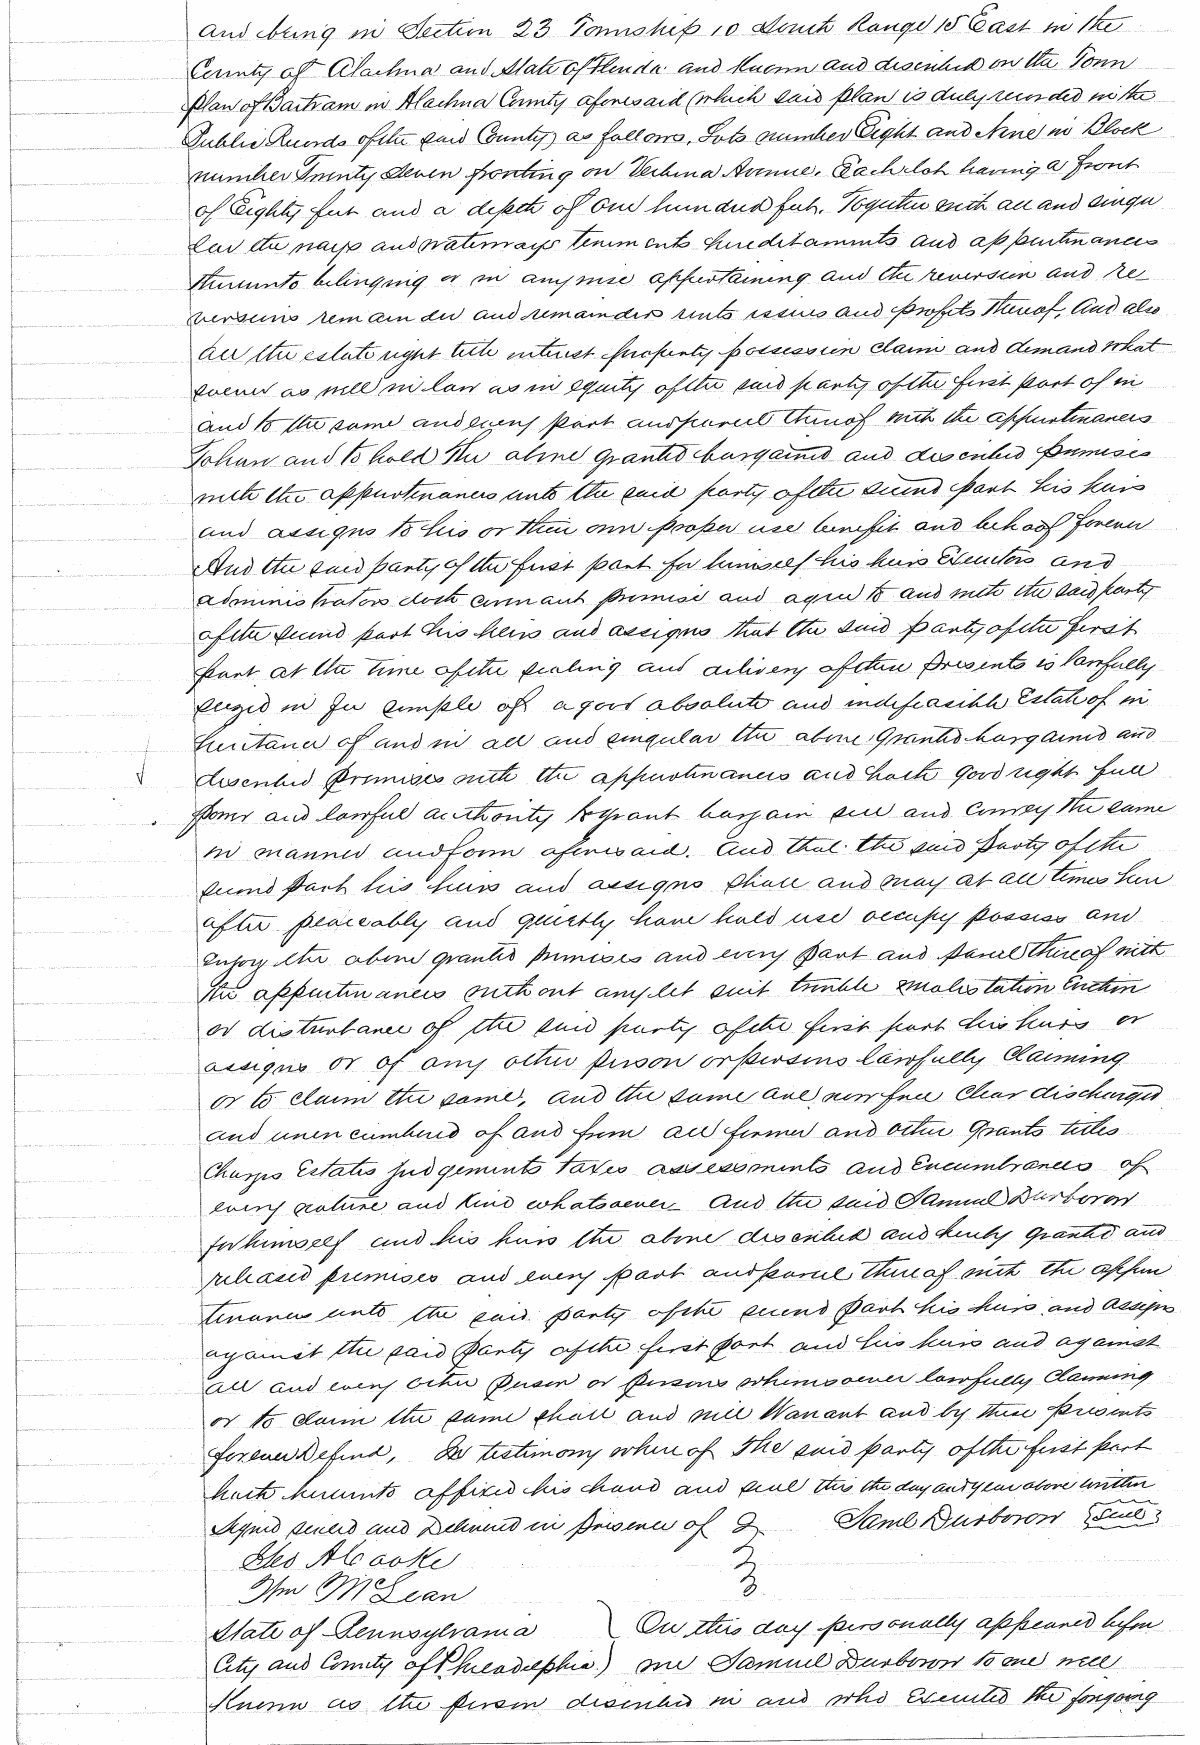 and being in Section 23 Township 10 South Range 18 East in the
County of Alachua and State of Florida and known and described on the Town
plan of Bartram in Alachua County aforesaid (which said plan is duly recorded in the
Public Records of the said County) as follows, Lots number Eight and Nine in Block
number Twenty Seven fronting on Avenue. Each lot having a front
of Eighty feet and a depth of one hundred feet. Together with all and singu
lar the ways and waterways tenements hereditaments and appurtenances
thereunto belonging or in anywise appertaining and the reversion and re
versions remainder and remainders rents issues and profits thereof, And also
all the estate right title interest property possession claim and demand what
soever as well in law as in equity of the said party of the first part of in
and to the same and every part and parcel thereof with the appurtenances
To have and to hold the above granted bargained and described premises
with the appurtenances unto the said party of the second part his heirs
and assigns to his or their own proper use benefit and behoof forever
And the said party of the first part for himself his heirs Executors and
administrators doth covenant promise and agree to and with the said party
of the second part his heirs and assigns that the said party of the first
part at the time of the sealing and delivery of these presents is lawfully
seized in fee simple of a good absolute and indefeasible Estate of in
heritance of and in all and singular the above Granted bargained and
described Premises with the appurtenances and hath good right full
power and lawful authority to grant bargain sell and convey the same
in manner and form aforesaid. And that the said Party of the
second part his heirs and assigns shall and may at all times here
after peaceably and quietly have hold use occupy possess and
enjoy the above granted premises and every part and parcel thereof with
the appurtenances without any let suit trouble molestation Eviction
or disturbance of the said party of the first part his heirs or
assigns or of any other person or persons lawfully Claiming
or to claim the same, and the same are now free Clear discharged
and unencumbered of and from all former and other Grants titles
Charges Estates judgements taxes assessments and Encumbrances of
every nature and kind whatsoever And the said Samuel Durborow
for himself and his heirs the above described and hereby granted and
released premises and every part and parcel thereof with the appur
tenances unto the said party of the second part his heirs and assigns
against the said Party of the first part and his heirs and against
all and every other person or persons whomsoever lawfully Claiming
or to claim the same shall and will Warrant and by these presents
forever Defend, In testimony whereof The said party of the first part
hath hereunto affixed his hand and seal this the day and year above written
Signed sealed and Delivered in presence of Saml Durborow Seal
Geo A Cooke
Wm McLean
State of Pennsylvania ) On this day personally appeared before
City and County of Philadelphia ) me Samuel Durborow to me well
Known as the person described in and who Executed the foregoing